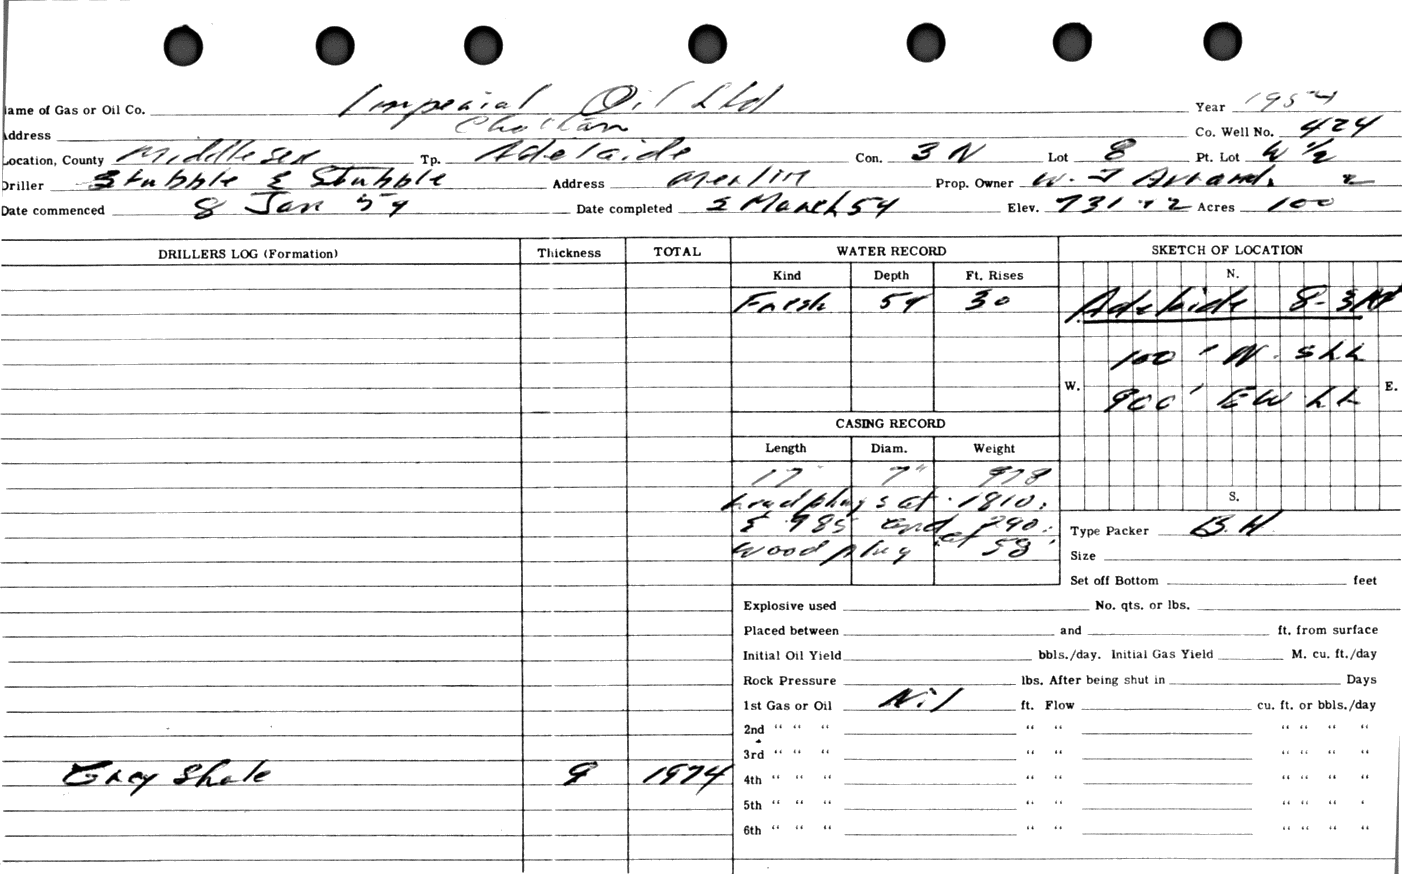 Name of Gas or Oil Co. Imperial Oil Ltd Year 1954
Address Chatham Co. Well No. 424
Location, County Middlesex Tp. Adelaide Con. 3 N Lot 8 Pt. Lot W 1/2
Driller Stubble & Stubble Address Merlin Prop. Owner W. J
Date commenced 8 Jan 54 Date completed 2 March 54 Elev. 731.2 Acres 100
DRILLERS LOG (Formation) Thickness TOTAL WATER RECORD SKETCH OF LOCATION
Kind Depth Ft. Rises N.
Fresh 54 30 Adelaide 8-3N
100' N. SLL
W. E.
900' E W LL
CASING RECORD
Length Diam. Weight
17 7" 978
Lead plugs at 1810: S.
& 985 and 290: Type Packer B.H
Wood plug at 58' Size
Set off Bottom feet
Explosive used No. qts. or lbs.
Placed between and ft. from surface
Initial Oil Yield bbls./day. Initial Gas Yield M. cu. ft./day
Rock Pressure lbs. After being shut in Days
1st Gas or Oil Nil ft. Flow cu. ft. or bbls./day
2nd " " " " " " " " "
3rd " " " " " " " " "
Grey Shale 9 1974 4th " " " " " " " " "
5th " " " " " " " " "
6th " " " " " " " " "